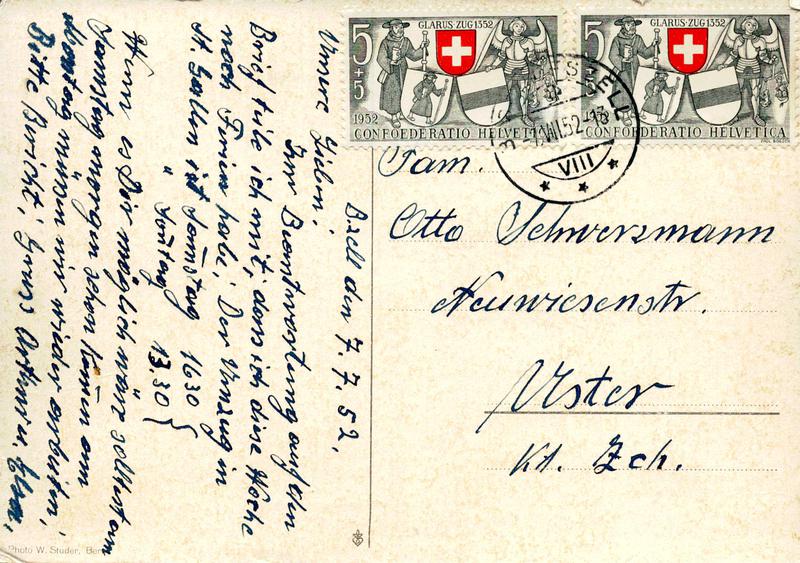 GLARUS·ZUG 1352
5+5
1952
CONFOEDERATIO HELVETICA
GLARUS·ZUG 1352
5+5
CONFOEDERATIO HELVETICA
VII.52
VIII
Bzell den 7.7.52.
Unsere Lieben,
Zur Beantwortung auf den
Brief teile ich mit, dass ich diese Woche
noch Ferien habe, Der Umzug in
St. Gallen ist Samstag 1630
" Sonntag 13.30
Wenn es Dir möglich wäre solltest am
Samstag morgen schon kommen am
Montag müssen wir wieder arbeiten,
Bitte Bericht,
Fam.
Otto Schwerzmann
Neuwiesenstr.
Uster
Kt. Zch.
Photo W. Studer, Bern